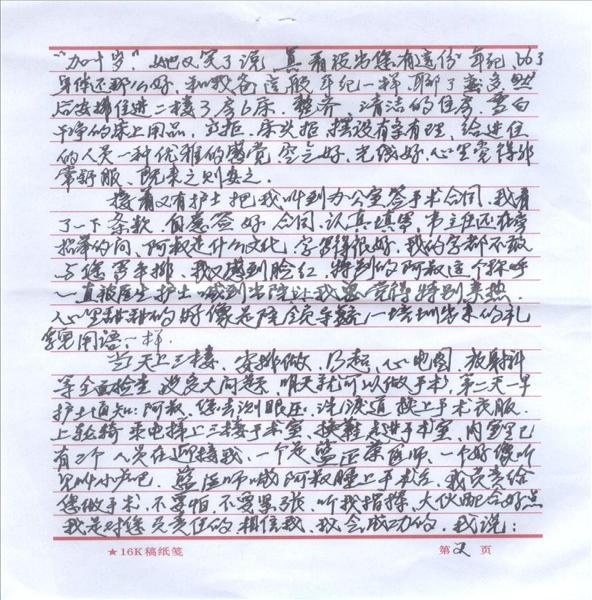 "加十岁"她又笑了说 真看没出您有这份年纪,
身体还那么好,和我爸 年纪一样,聊了 然
后安排住进二楼了房6床.整齐.清洁的住房,雪白
干净的床上用品,立柜.床头柜摆设有条有理,给进住
的人员一种优雅的感觉,空气好,光线好,心里觉得非
常舒服、既来之则安之.
接着又有护士把我叫到办公室签手术合同,我看
了一下条款,自愿签好合同.认真填写,韦主任还在旁
的问,阿叔是什么文化,字写得很好,我的字都不敢
与您 我又感到脸红,特别的阿叔这个称呼
一直被医生护士喊到出院让我感觉得特别亲热.
心里甜甜的好像是院全系统一培训出来的礼
貌用语一样.
当天上三楼、安排做、B超、心电图、放射科
等全面检查 没多大问题,明天就可以做手术,第二天一早
护士通知:阿叔,您去测眼压、洗泪道 换上手术衣服.
上轮椅 乘电梯上三楼手术室,换鞋走进手术室,内室里已
有2个人员在迎接我,一个是蓝 医师,一个好像听
见叫小卢吧.蓝医师喊阿叔睡上手术台,我负责给
您做手术,不要怕,不要紧张,听我指挥,大伙配合好点
我是对您负责任的相信我,我会成功的,我说:
★16K稿纸笺 第2页